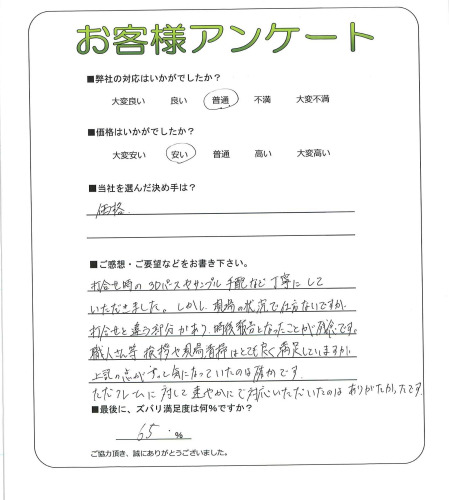 お客様アンケート
■弊社の対応はいかがでしたか？
大変良い 良い 普通 不満 大変不満
■価格はいかがでしたか？
大変安い 安い 普通 高い 大変高い
■当社を選んだ決め手は？
価格
■ご感想・ご要望などをお書き下さい。
打合せ時の3Dパースやサンプル手配など丁寧にして
いただきました。しかし、現場の状況で仕方ないですが、
打合せと違う部分があり、時後報告となったことが残念です。
職人さん等 挨拶や現場清掃はとても良く満足していますが、
上記の点がずっと気になっていたのは確かです。
ただクレームに対して速やかにで対応いただいたのは ありがたかったです。
■最後に、ズバリ満足度は何％ですか？
65．％
ご協力頂き、誠にありがとうございました。